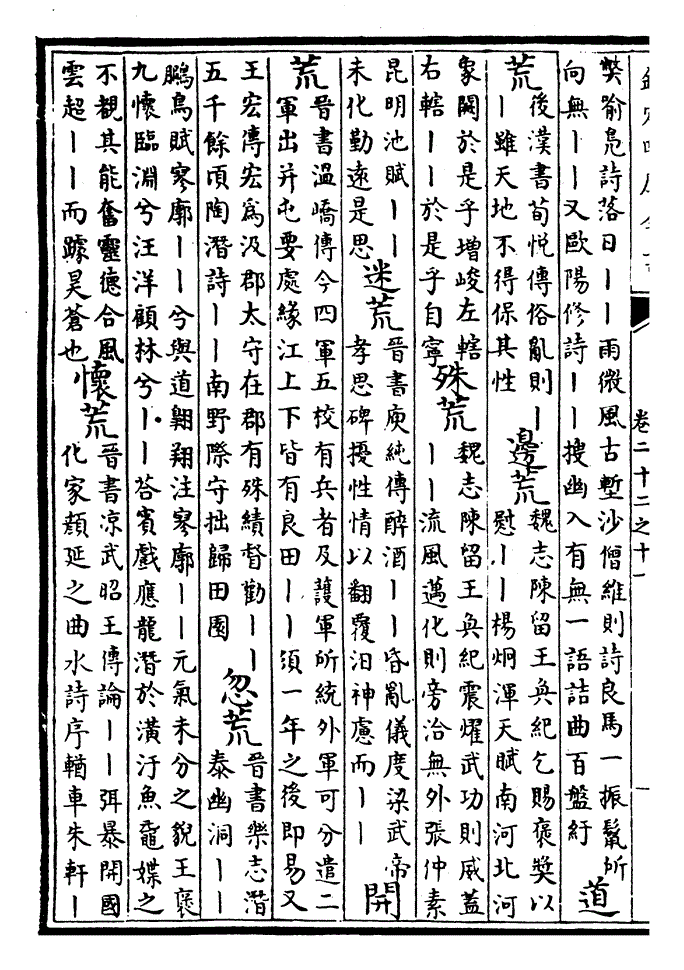 卷二十二之十一
樊喻鳧詩落日丨丨雨微風古塹沙僧維則詩良馬一振鬣所
向無丨丨又歐陽修詩丨丨搜幽入有無一語詰曲百盤紆
道
荒
後漢書荀悅傳俗亂則丨
丨雖天地不得保其性
邊荒
魏志陳留王奐紀乞賜褒獎以
慰丨丨楊炯渾天賦南河北河
象闕於是乎增峻左轄
右轄丨丨於是乎自寧
殊荒
魏志陳留王奐紀震燿武功則威蓋
丨丨流風邁化則旁洽無外張仲素
昆明池賦丨丨
未化勤遠是思
迷荒
晉書庾純傳醉酒丨丨昏亂儀度梁武帝
孝思碑擾性情以翻覆汩神慮而丨丨
開
荒
晉書溫嶠傳今四軍五校有兵者及護軍所統外軍可分遣二
軍出并屯要處緣江上下皆有良田丨丨須一年之後即易又
王宏傳宏為汲郡太守在郡有殊績督勸丨丨
五千餘頃陶潛詩丨丨南野際守拙歸田園
忽荒
晉書樂志潛
泰幽洞丨丨
鵩鳥賦寥廓丨丨兮與道翺翔注寥廓丨丨元氣未分之貌王褒
九懷臨淵兮汪洋顧林兮丨丨荅賓戲應龍潛於潢汙魚黿媟之
不覩其能奮靈德合風
雲超丨丨而躆昊蒼也
懷荒
晉書凉武昭王傳論丨丨弭暴開國
化家顏延之曲水詩序輶車朱軒丨